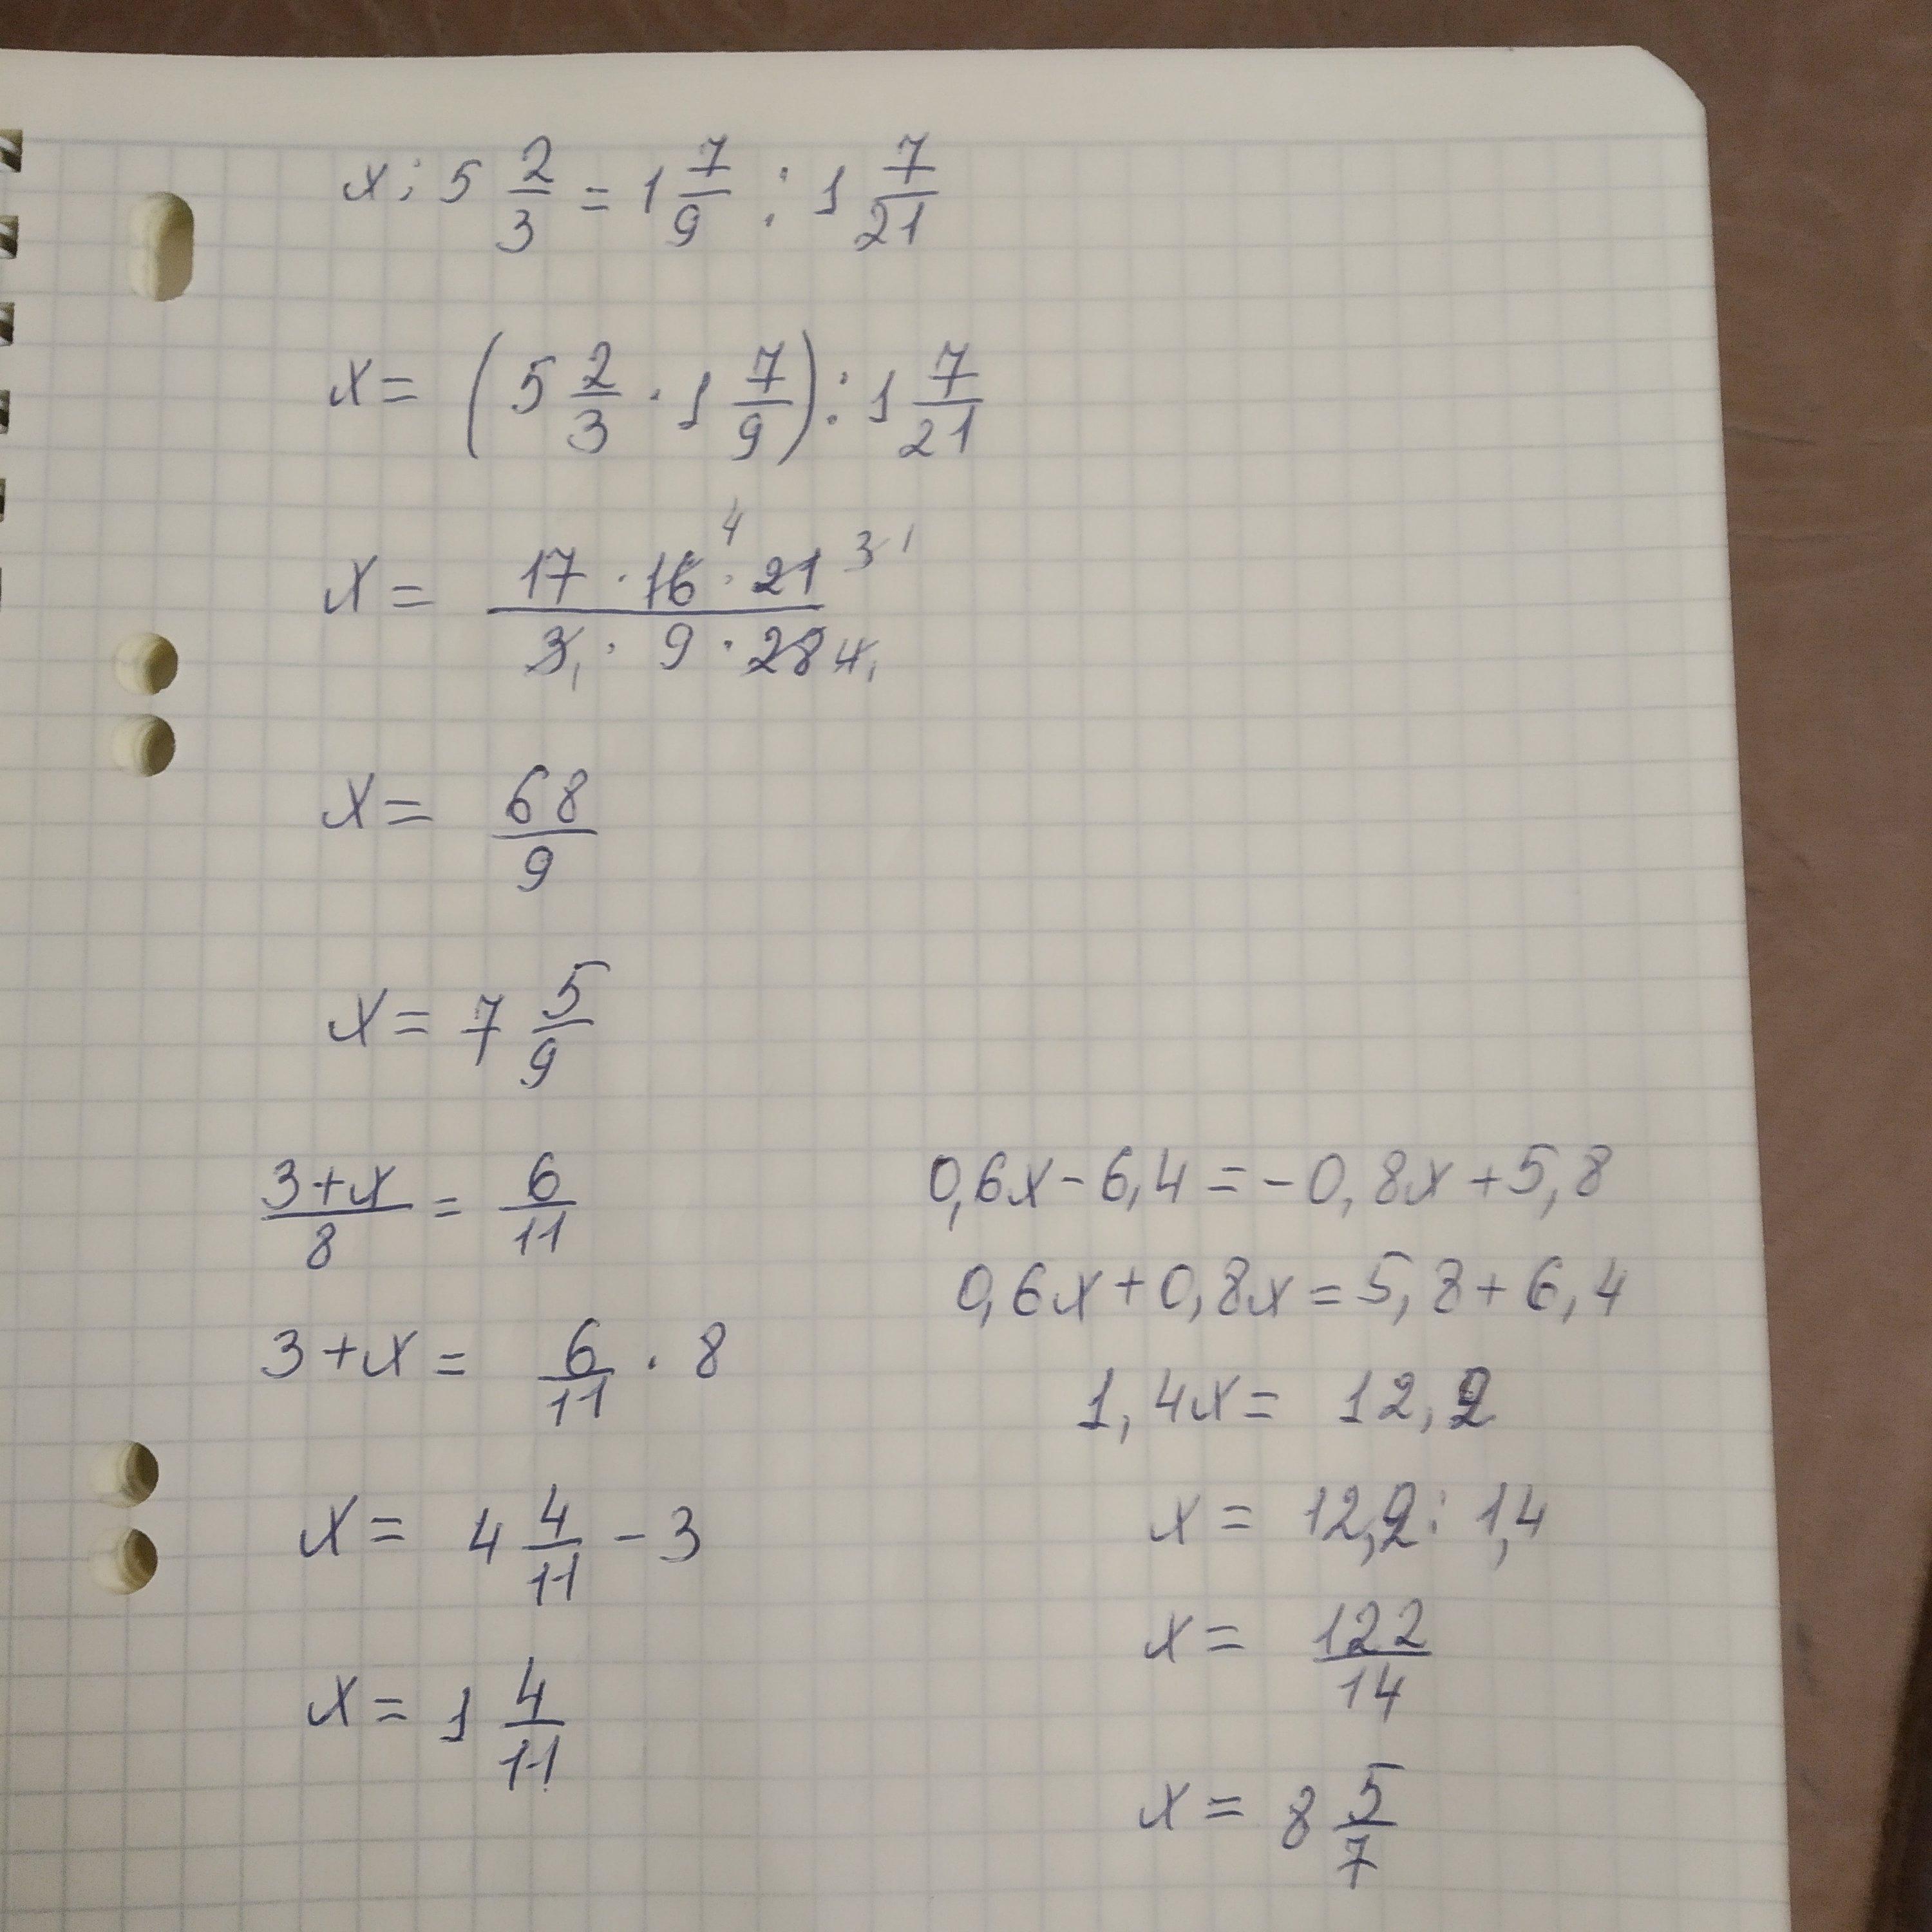 x : 5 2/3 = 1 7/9 : 1 7/21
x = (5 2/3 · 1 7/9) : 1 7/21
x = 17 · 16 4 · 21 3 1 / 3 1 · 9 · 28 4 1
x = 68/9
x = 7 5/9
3+x/8 = 6/11
3+x = 6/11 · 8
x = 4 4/11 - 3
x = 1 4/11
0,6x - 6,4 = -0,8x + 5,8
0,6x + 0,8x = 5,8 + 6,4
1,4x = 12,2
x = 12,2 : 1,4
x = 122/14
x = 8 5/7